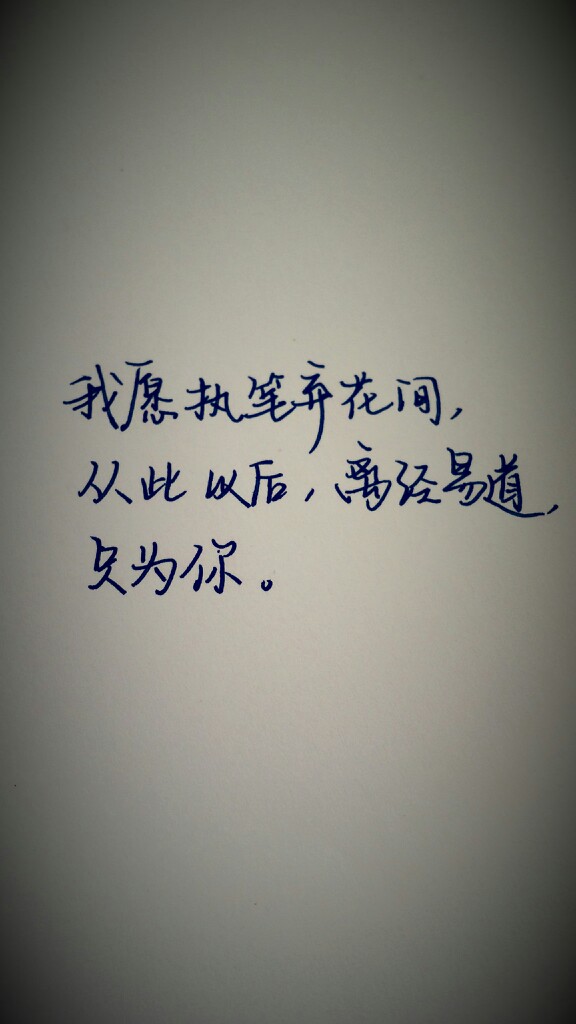 我愿执笔弃花间，
从此以后，离经易道，
只为你。